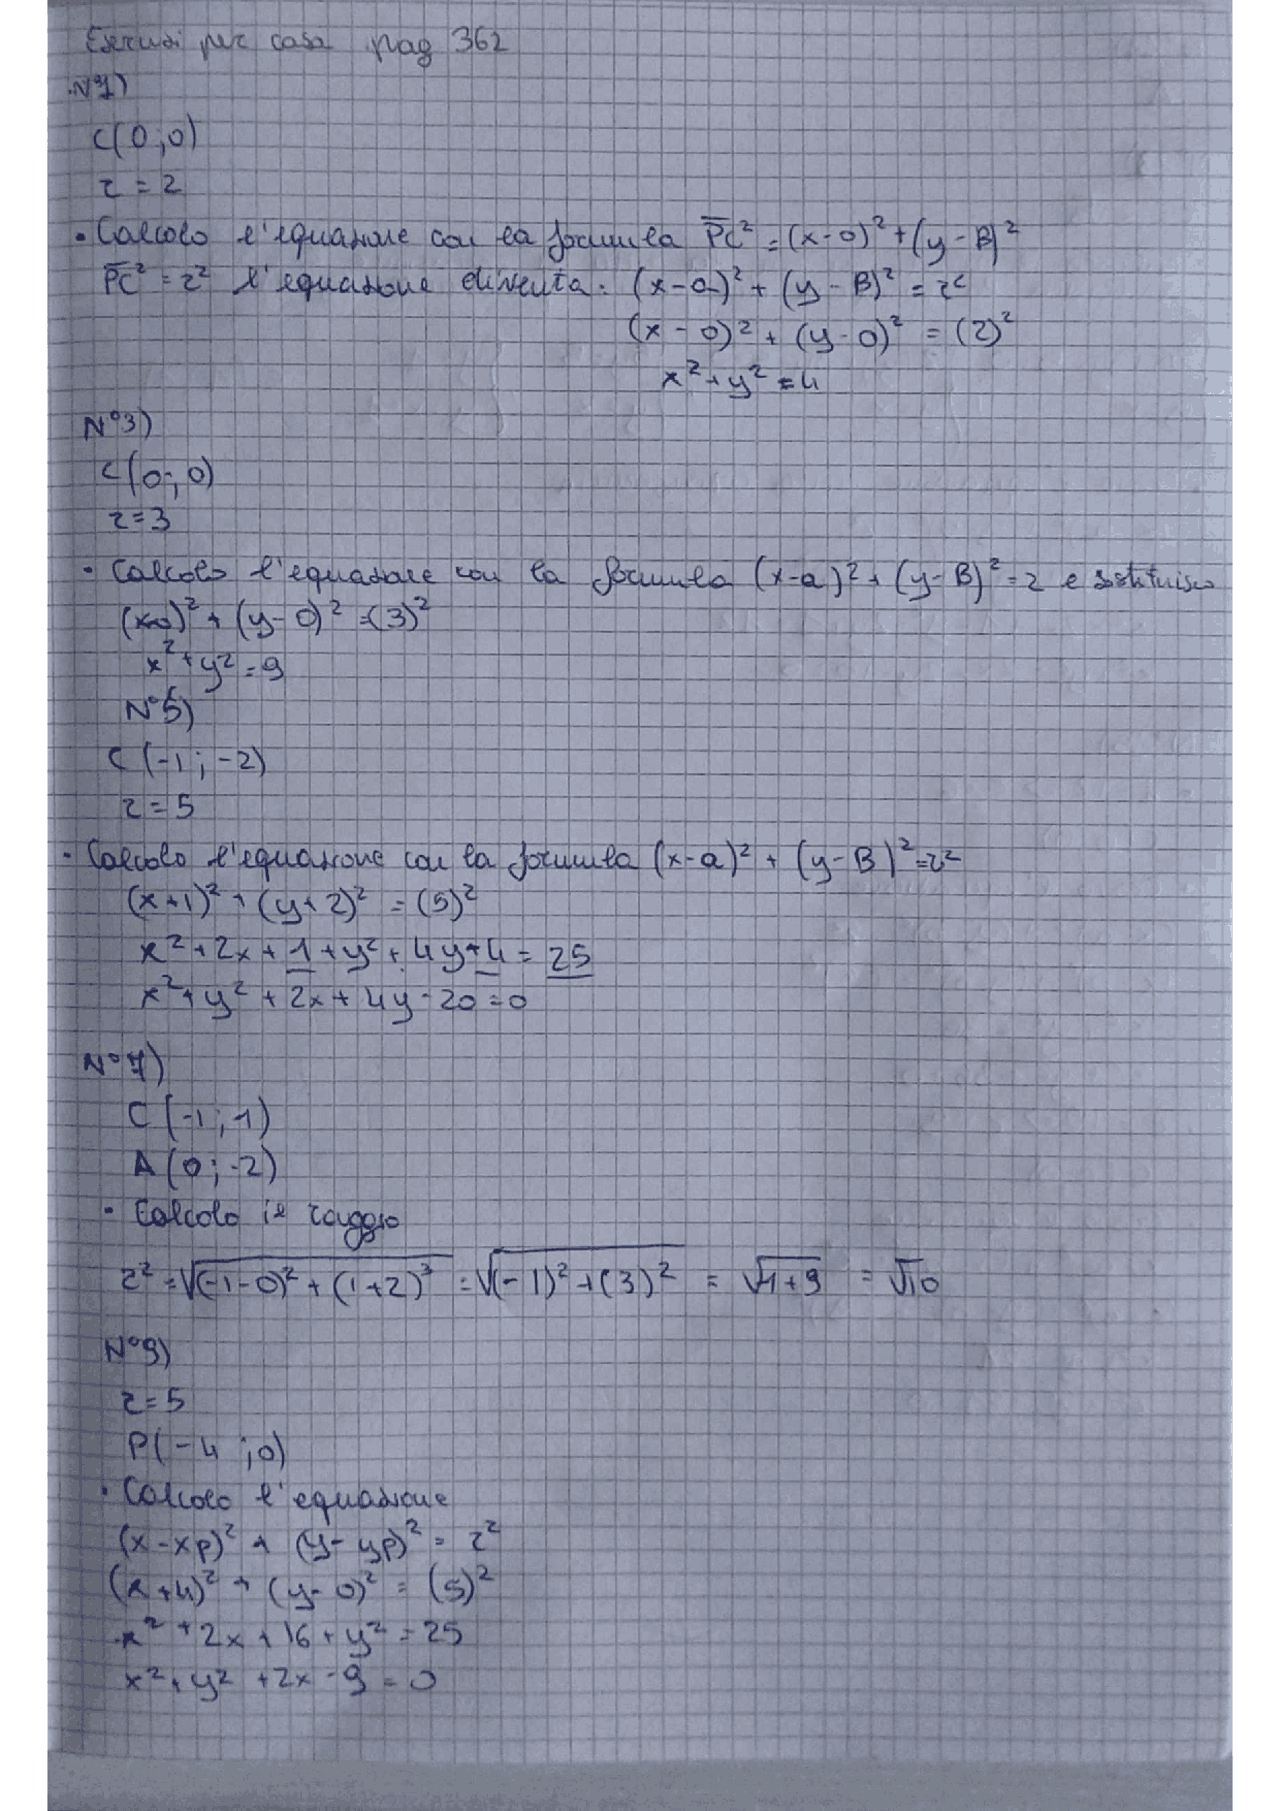 Esercizi per casa pag 362
N°1)
C(0;0)
r = 2
• Calcolo l'equazione con la formula PC² = (x-0)² + (y-B)²
PC² = r² l'equazione diventa: (x-a)² + (y-B)² = r²
(x-0)² + (y-0)² = (2)²
x²+y² = 4
N°3)
C(0;0)
r=3
• Calcolo l'equazione con la formula (x-a)² + (y-B)² = 2 e sostituisco
(x-0)² + (y-0)² = (3)²
x²+y² = 9
N°5)
C(-1;-2)
r = 5
• Calcolo l'equazione con la formula (x-a)² + (y-B)² = r²
(x+1)² + (y+2)² = (5)²
x²+2x+1+y²+4y+4 = 25
x²+y²+2x+4y-20=0
N°7)
C(-1;1)
A(0;-2)
• Calcolo il raggio
r² = √(-1-0)² + (1+2)² = √(-1)² + (3)² = √1+9 = √10
N°9)
r=5
P(-4;0)
• Calcolo l'equazione
(x-xp)² + (y-yp)² = r²
(x+4)² + (y-0)² = (5)²
x²+2x+16+y² = 25
x²+y²+2x-9=0